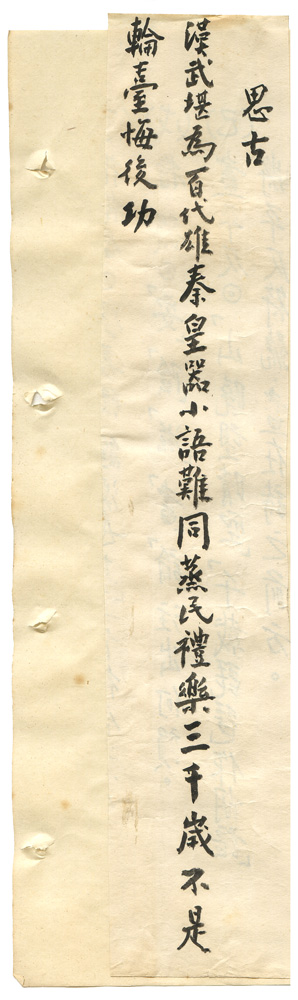 思古
漢武堪為百代雄秦皇器小語難同蒸民禮樂三千歲不是
輪臺悔後功